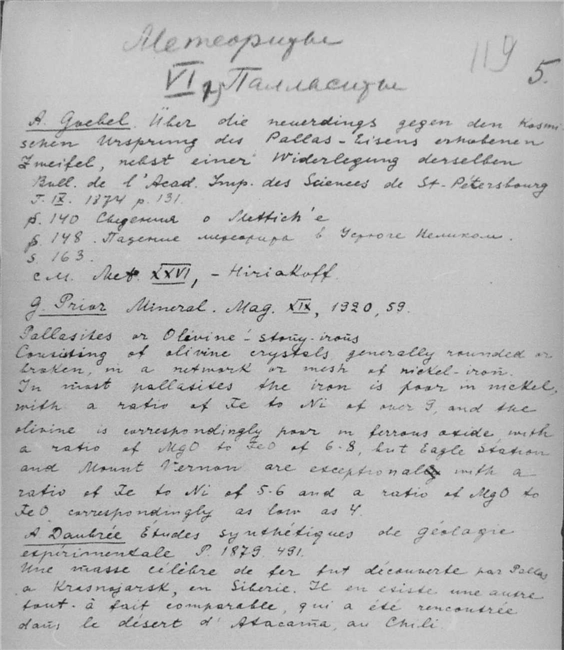 Метеориты
119
5.
VI Палласиты
A. Goebel. Über die neuerdings gegen den kosmi-
schen Ursprung des Pallas-Eisens erhobenen
Zweifel, nebst einer Widerlegung derselben
Bull. de l'Acad. Imp. des Sciences de St-Pétersbourg
T. IX. 1874 p. 131.
p. 140 Сведения о Mettich'е
p. 148. Падение метеорита в Устюге Великом.
s. 163.
см. Met XXVI, - Hiriakoff.
G. Prior Mineral. Mag. XIX, 1920, 59.
Pallasites or Olivine-stony-irons
Consisting of olivine crystals generally rounded or
broken, in a network or mesh of nickel-iron.
In most pallasites the iron is poor in nickel,
with a ratio of Fe to Ni of over 9, and the
olivine is correspondingly poor in ferrous oxide with
a ratio of MgO to FeO of 6-8, but Eagle Station
and Mount Vernon are exceptional with a
ratio of Fe to Ni of 5-6 and a ratio of MgO to
FeO correspondingly as low as 4.
A Daubrée Etudes synthétiques de géologie
expérimentale P. 1879. 491.
Une masse célèbre de fer fut découverte par Pallas
a Krasnojarsk, en Siberie. Il en existe une autre
tout-à fait comparable, qui a été rencontrée
dans le désert d'Atacama, au Chili.